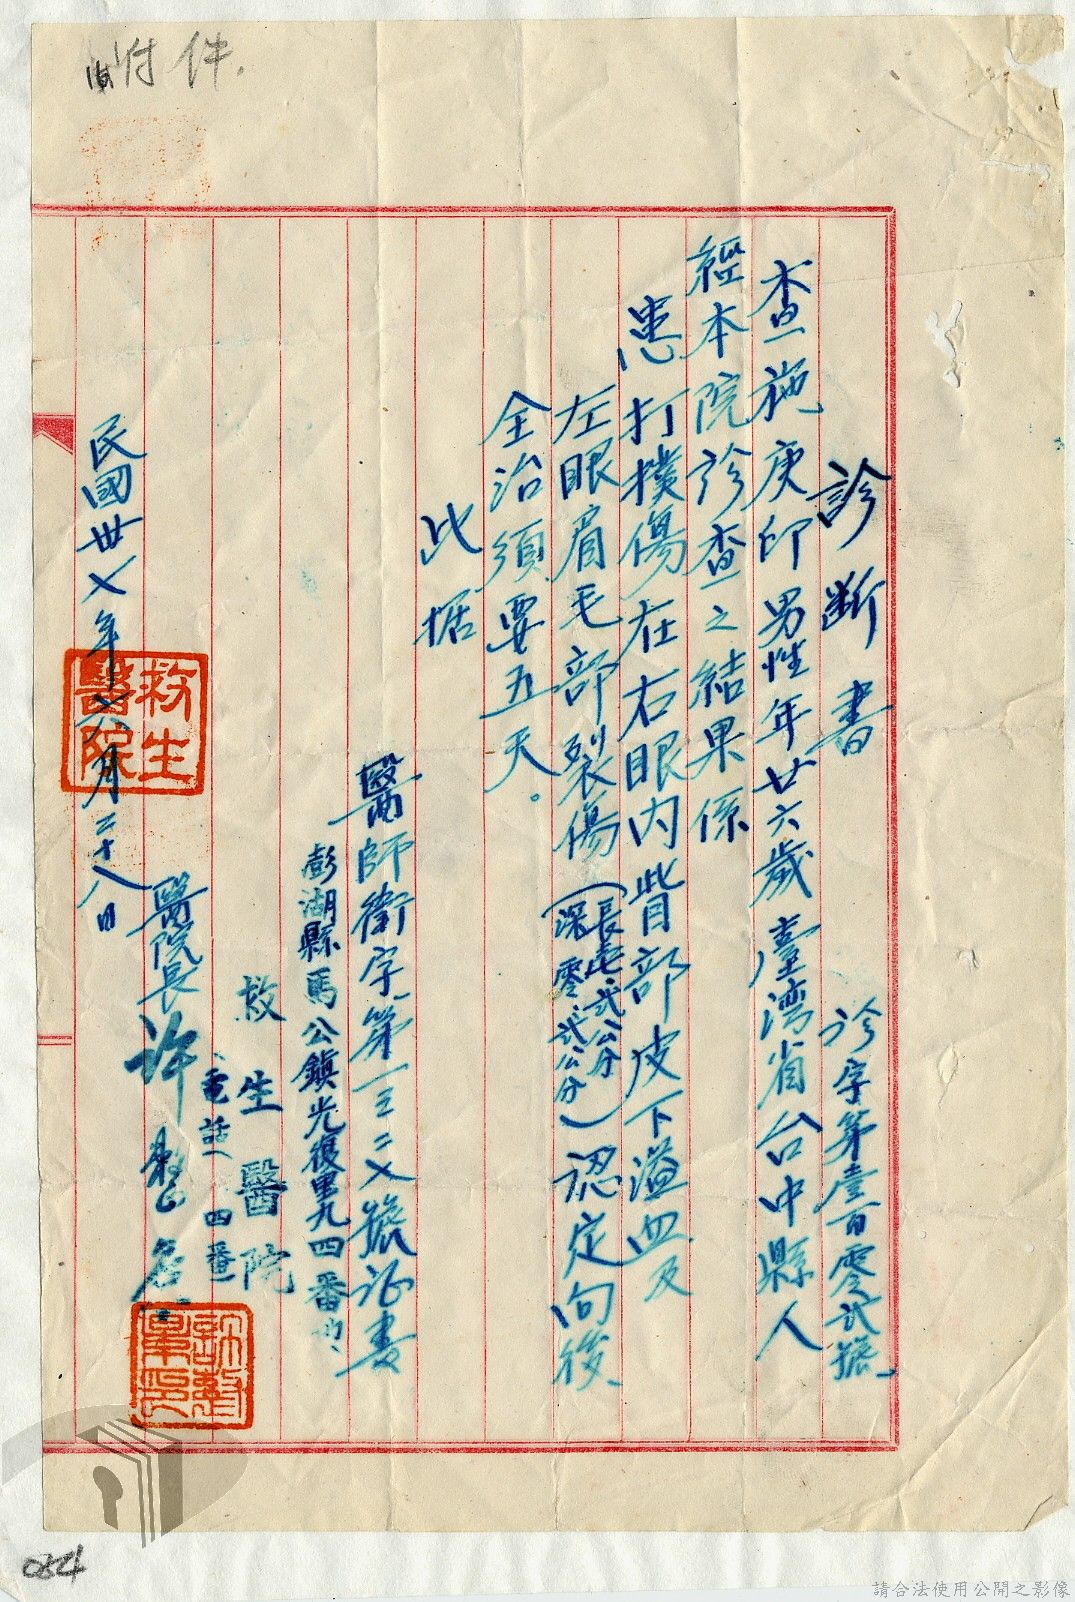 附件.
診斷書
診字第壹百零弍號
查施庚印男性年廿六歲臺灣省台中縣人
經本院診查之結果係
患打撲傷在右眼內眥部皮下溢血及
左眼眉毛部裂傷(長壱、弍公分 深零、弍公分)認定向後
全治須要五天。
此据
醫師衛字第一三二乂號证書
彭湖縣馬公鎮光復里九四番
救生醫院
電話 四番
醫院長許整
民國卅乂年 月二十八日
救生醫院
許整
0824
請合法使用公開之影像